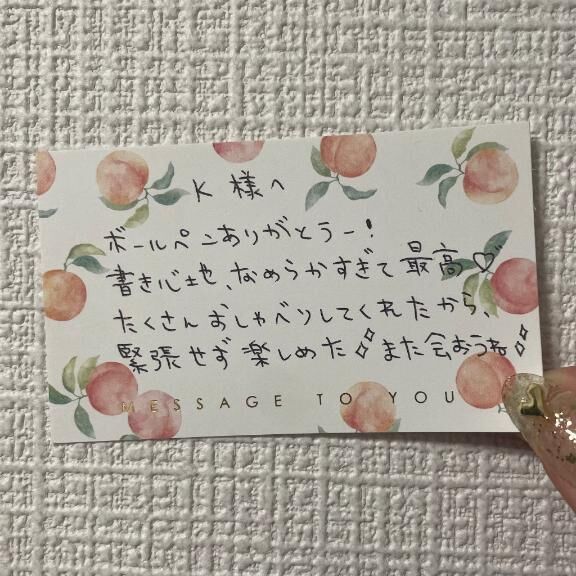 K 様へ
ボールペンありがとうー!
書き心地、なめらかすぎて最高♡
たくさんおしゃべりしてくれたから、
緊張せず楽しめた✧また会おうね✧
MESSAGE TO YOU